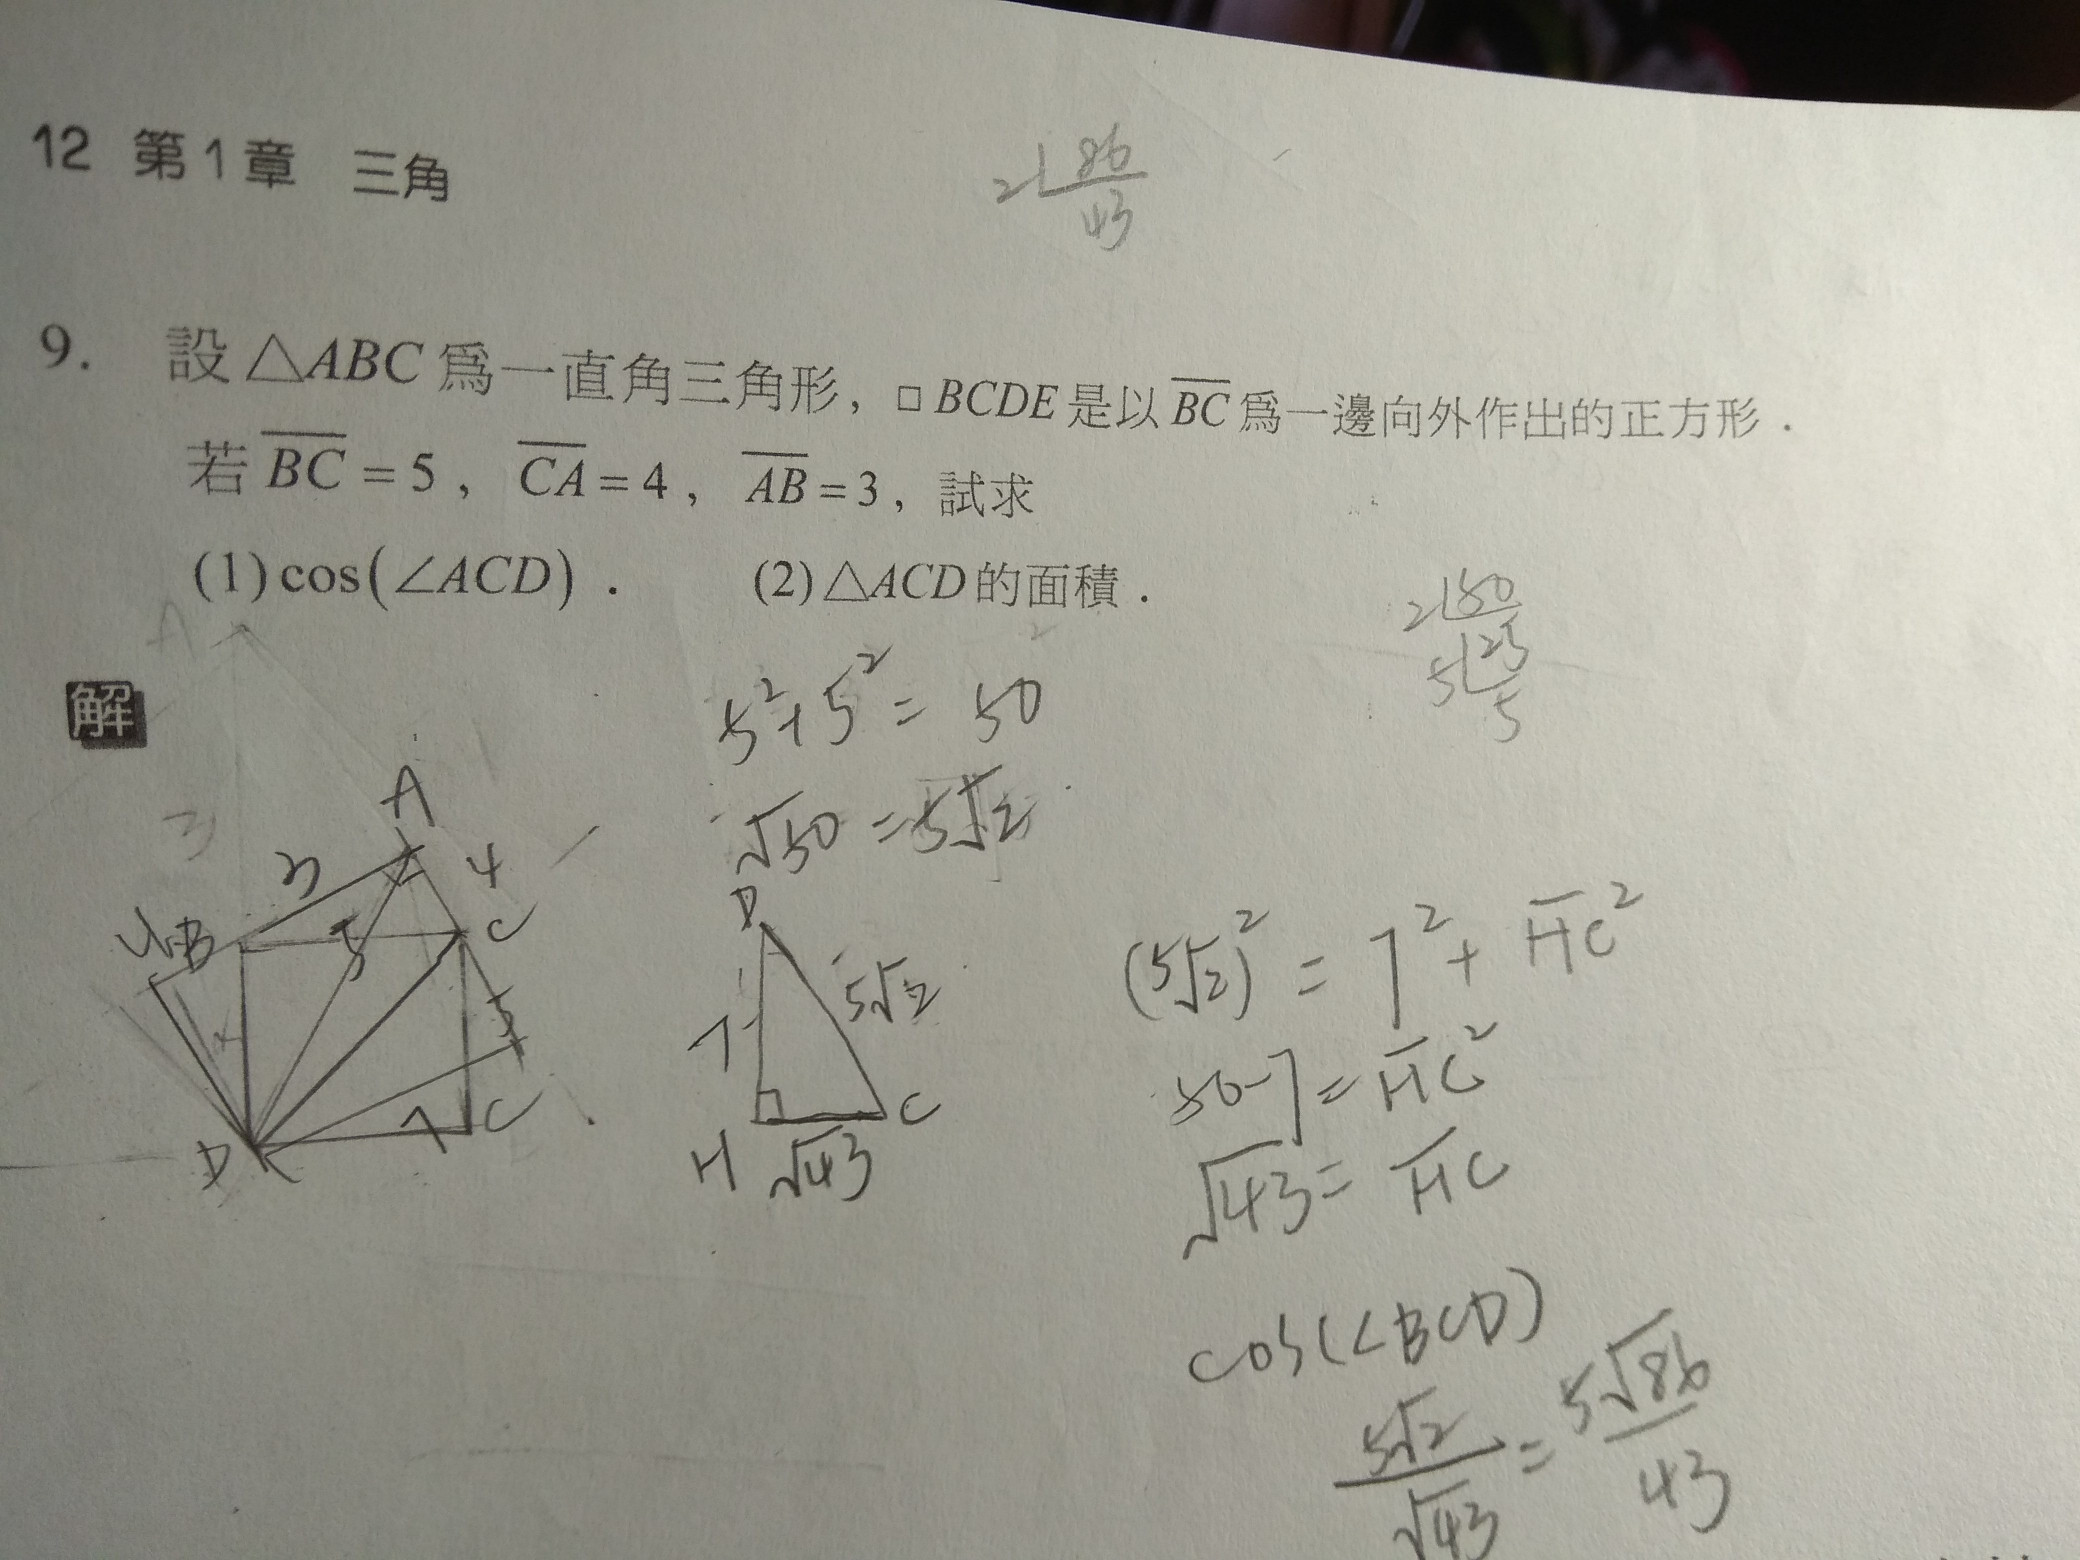 12 第1章 三角
2 86
43
9. 設△ABC爲一直角三角形，□BCDE是以BC爲一邊向外作出的正方形．
若BC=5，CA=4，AB=3，試求
(1) cos(∠ACD)． (2) △ACD的面積．
解
2 50
5 25
5
A
3
5²+5²= 50
√50 =5√2
A
3 4
4 B 5 C
5
D 7 C
D
7 5√2
H √43 C
(5√2)² = 7²+ HC²
50-7= HC²
√43= HC
cos(∠BCD)
5√2/√43 = 5√86/43